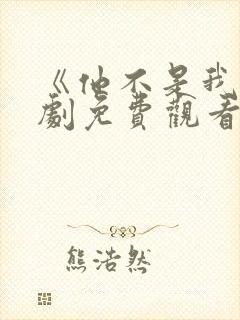 《他不是我
劇免費觀看
熊浩然